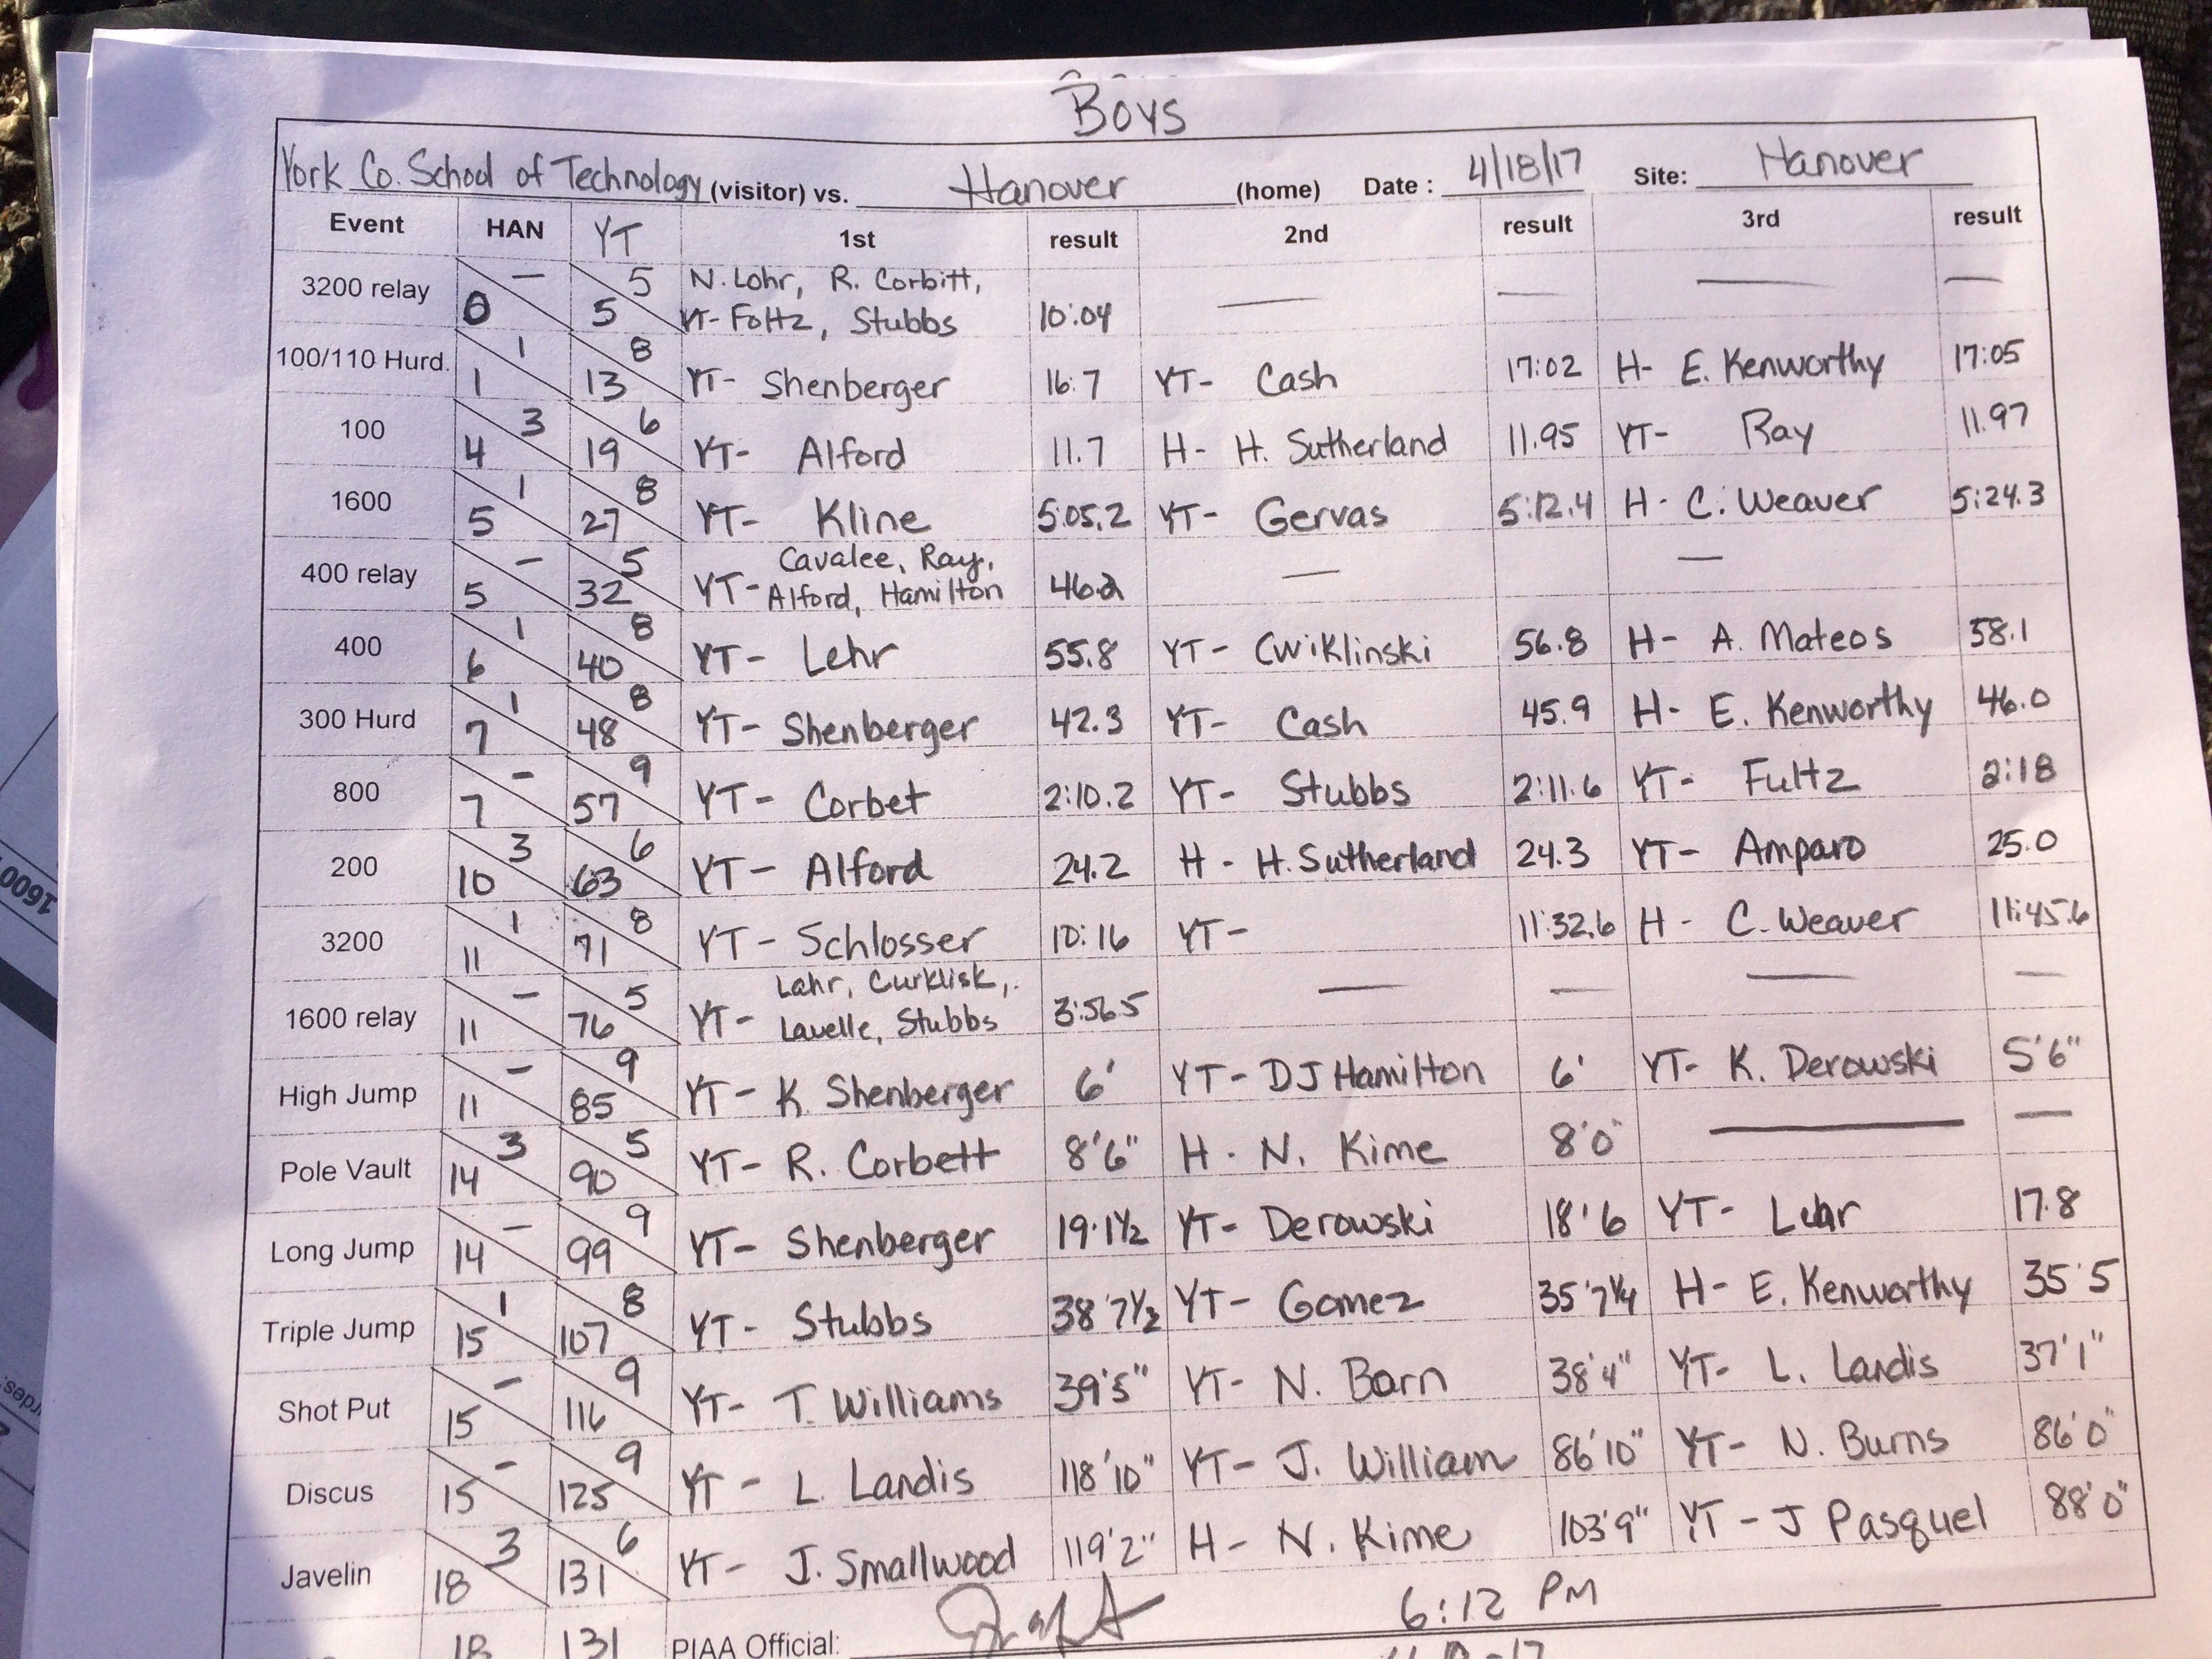 Boys
York Co. School of Technology (visitor) vs. Hanover (home) Date : 4/18/17 Site: Hanover
Event HAN YT 1st result 2nd result 3rd result
3200 relay — 0 5 5 N. Lohr, R. Corbitt, YT- Foltz, Stubbs 10:04 — — — —
100/110 Hurd. 1 1 8 13 YT- Shenberger 16:7 YT- Cash 17:02 H- E. Kenworthy 17:05
100 3 4 6 19 YT- Alford 11.7 H- H. Sutherland 11.95 YT- Ray 11.97
1600 1 5 8 27 YT- Kline 5:05.2 YT- Gervas 5:12.4 H- C. Weaver 5:24.3
400 relay — 5 5 32 YT- Cavalee, Ray, Alford, Hamilton 46.2 — —
400 1 6 8 40 YT- Lehr 55.8 YT- Cwiklinski 56.8 H- A. Mateos 58.1
300 Hurd 1 7 8 48 YT- Shenberger 42.3 YT- Cash 45.9 H- E. Kenworthy 46.0
800 — 7 9 57 YT- Corbet 2:10.2 YT- Stubbs 2:11.6 YT- Fultz 2:18
200 3 10 6 63 YT- Alford 24.2 H- H. Sutherland 24.3 YT- Amparo 25.0
3200 1 11 8 71 YT- Schlosser 10:16 YT- 11:32.6 H- C. Weaver 11:45.6
1600 relay — 11 5 76 YT- Lahr, Curklisk, Lavelle, Stubbs 3:56.5 — — — —
High Jump — 11 9 85 YT- K Shenberger 6' YT- DJ Hamilton 6' YT- K. Derowski 5'6"
Pole Vault 3 14 5 90 YT- R. Corbett 8'6" H- N. Kime 8'0" — —
Long Jump — 14 9 99 YT- Shenberger 19·1½ YT- Derowski 18'6 YT- Lehr 17.8
Triple Jump 1 15 8 107 YT- Stubbs 38'7½ YT- Gomez 35'7¼ H- E. Kenworthy 35'5
Shot Put — 15 9 116 YT- T. Williams 39'5" YT- N. Barn 38'4" YT- L. Landis 37'1"
Discus — 15 9 125 YT- L. Landis 118'10" YT- J. William 86'10" YT- N. Burns 86'0"
Javelin 3 18 6 131 YT- J. Smallwood 119'2" H- N. Kime 103'9" YT- J Pasquel 88'0"
18 131 PIAA Official: 6:12 PM
1600